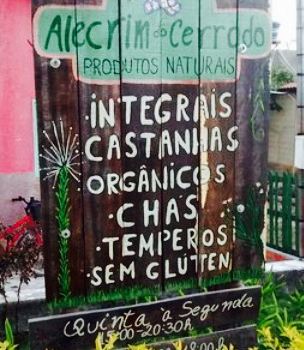 Alecrim do Cerrado
PRODUTOS NATURAIS
·INTEGRAIS
·CASTANHAS
·ORGÂNICOS
·CHAS
·TEMPEROS
·SEM GLÚTEN
Quinta à Segunda
15:00-20:30h